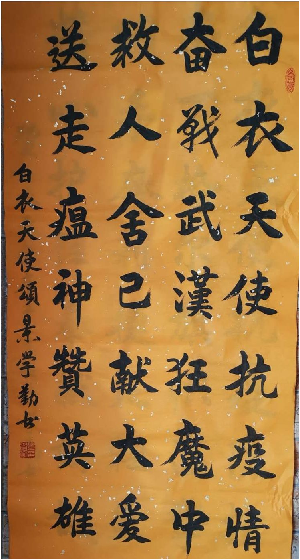 白衣天使抗疫情
奋战武漢狂魔中
救人舍己献大爱
送走瘟神赞英雄
白衣天使頌景学勤书